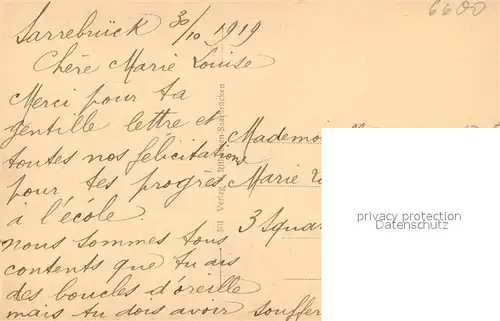 6600
Sarrebrück 30/10 1919
Chère Marie Louise
Merci pour ta
gentille lettre et
toutes nos félicitations
pour tes progres
à l'école.
nous sommes tous
contents que tu as
des boucles d'oreille
mais tu dois avoir souffer
Mademoi
Marie
3 Squar
501 Verlag Saarbrücken
privacy protection
(Datenschutz)